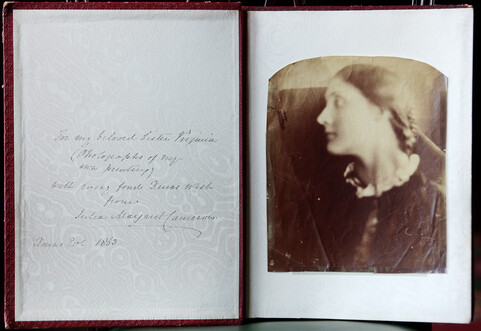 For my beloved Sister Virginia
(Photographs of my
own printing)
with every fond Xmas wish
from
Julia Margaret Cameron
Xmas Dol 1863